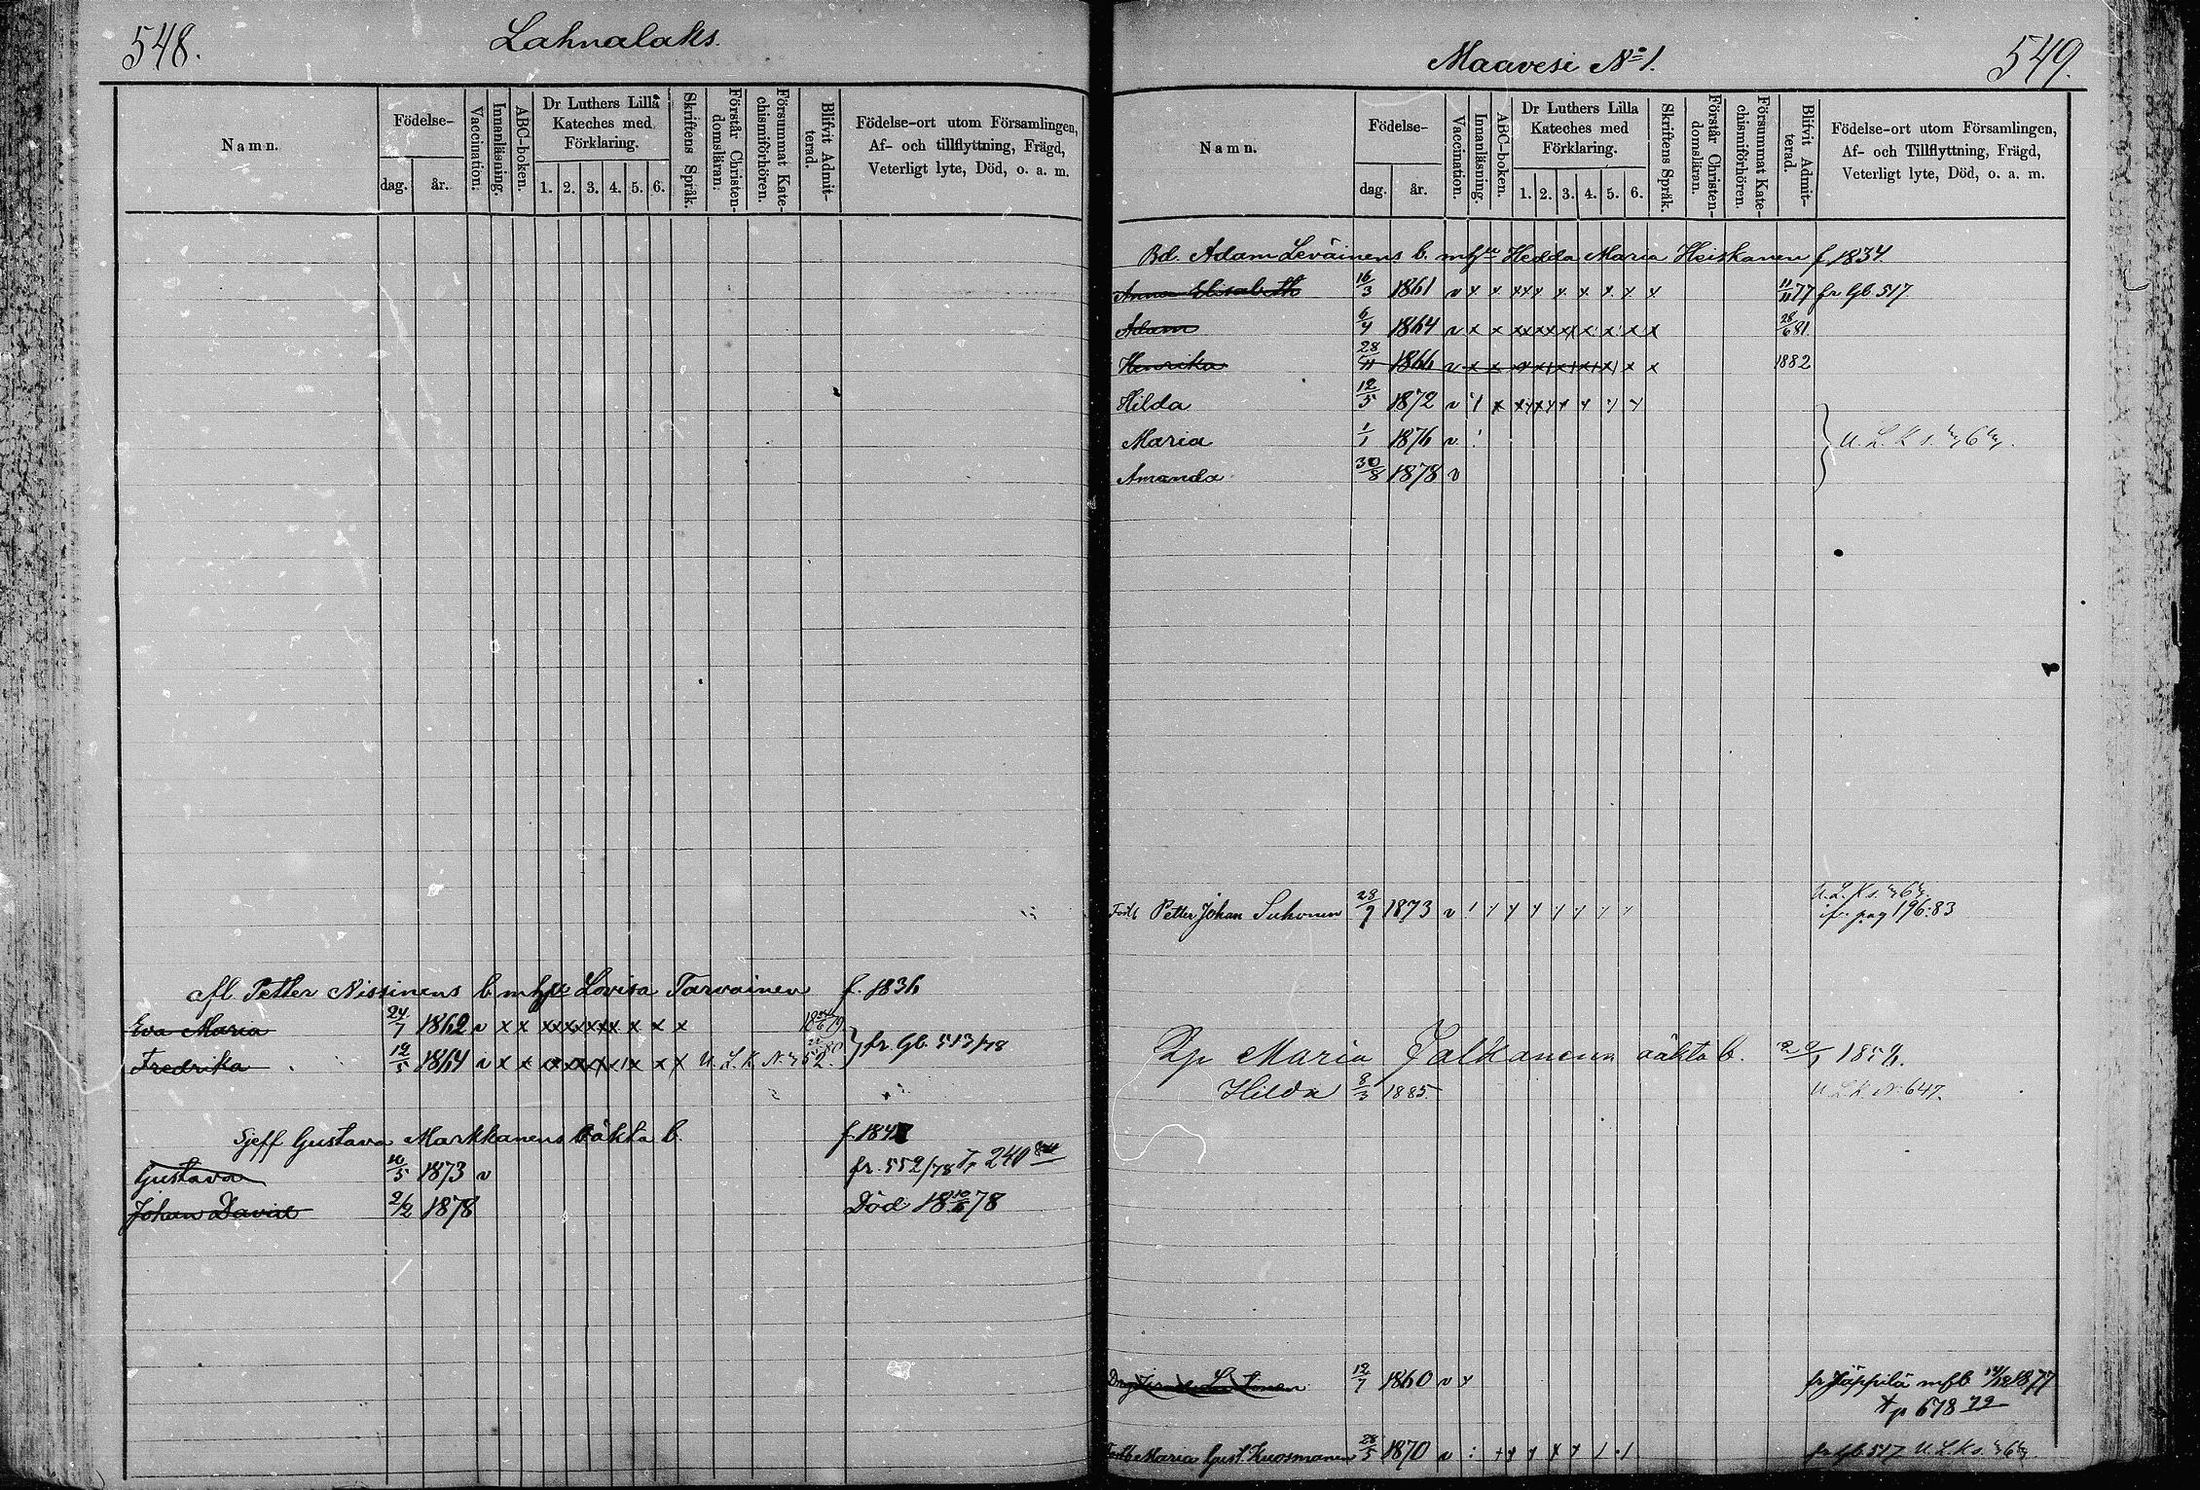 548.
Lahnalaks.
Namn.
Födelse-
dag.
år.
Vaccination.
Innanläsning.
ABC-boken.
Dr Luthers Lilla
Kateches med
Förklaring.
1. 2. 3. 4. 5. 6.
Skriftens Språk.
Förstår Christen-
domsläran.
Försummat Kate-
chismiförhören.
Blifvit Admit-
terad.
Födelse-ort utom Församlingen,
Af- och tillflyttning, Frägd,
Veterligt lyte, Död, o. a. m.
afl Petter Nissinens b mhu Lovisa Tarvainen f. 1836
Eva Maria 24/7 1862 v x x xx xx xx x x x x
Fredrika 12/5 1864 v x x x x x x x x x U. L. K. N:
} fr. Gb. 513/78
Gustava Markkanens oäkta b.
Gustava 10/5 1873 v fr. 552/78 Tp 240
Johan David 2/2 1878 Död 18 10/6 78
Maavesi No 1.
549.
Namn.
Födelse-
dag.
år.
Vaccination.
Innanläsning.
ABC-boken.
Dr Luthers Lilla
Kateches med
Förklaring.
1. 2. 3. 4. 5. 6.
Skriftens Språk.
Förstår Christen-
domsläran.
Försummat Kate-
chismiförhören.
Blifvit Admit-
terad.
Födelse-ort utom Församlingen,
Af- och Tillflyttning, Frägd,
Veterligt lyte, Död, o. a. m.
Bd. Adam Leväinens b. mhu Hedda Maria Heiskanen f 1834
Anna Elisabeth 16/3 1861 v x x xxx x x x x x 11/11 77 fr Gb. 517
Adam 6/4 1864 v x x xx x x x x x x 28/6 81.
Henrika 28/11 1866 v x x x x x x x x x 1882
Hilda 12/5 1872 v
Maria 1/1 1876 v
Amanda 30/8 1878 v
} U. L. K s.
Petter Johan Suhonen 28/9 1873 v
U. L. K s.
ifr. pag 196:83
Maria Jalkanens oäkta b.
Hilda 8/3 1885. U. L. K. N: 647.
12/7 1860 v x fr Jäppilä mfb 1877
p 678 79
Maria Gust. Kuosmanen 28/5 1870 v fr gb 517 U. L. K s.